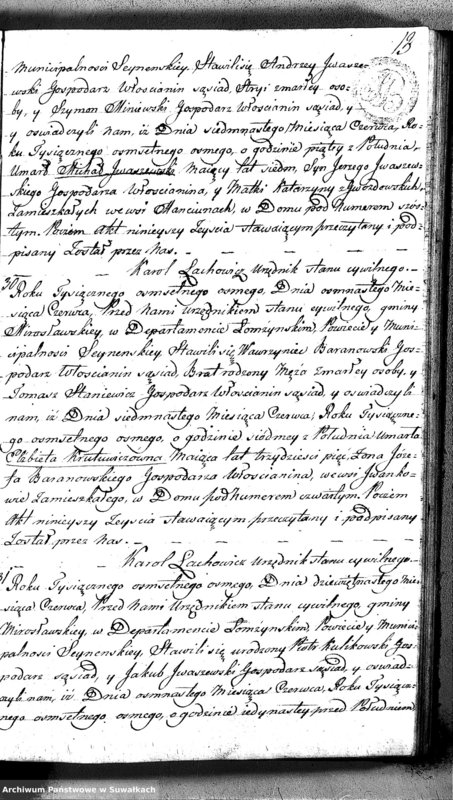 13
Municipalnosci Seynenskiey. Stawili się Andrzey Jwaszewski
Gospodarz Włoscianin sąsiad, Stryi zmarłey oso-
by, y Szymon Miniewski Gospodarz Włoscianin sąsiad, y
y oswiadczyli nam, iż Dnia siedmnastego Miesiąca Czerwca, Ro-
ku Tysiącznego osmsetnego osmego, o godzinie piątey z Południa,
Umarł Michał Jwaszewski maiący lat siedm, Syn Jerzego Jwaszew-
skiego Gospodarza Włoscianina, y Matki Katarzyny z
Zamieszkałych we wsi Manciunach, w Domu pod Numerem szós-
tym. Poczem Akt ninieyszy Zeyscia stawaiącym przeczytany i pod-
pisany Został przez Nas.
Karol Lachowicz Urzędnik stanu cywilnego.
30
Roku Tysiącznego osmsetnego osmego, Dnia osmnastego Mie-
siąca Czerwca, Przed Nami Urzędnikiem stanu cywilnego, gminy
Mirosławskiey, w Departamencie Łomżynskim, Powiecie y Muni-
cipalnosci Seynenskiey, Stawili się Wawrzyniec Baranowski Gos-
podarz Włoscianin sąsiad, Brat rodzony Męża Zmarłey osoby, y
Tomasz Staniewicz Gospodarz Włoscianin sąsiad, y oswiadczyli
nam, iż Dnia siedmnastego Miesiąca Czerwca, Roku Tysiączne-
go osmsetnego osmego, o godzinie siódmey z Południa Umarła
Elzbieta maiąca lat trzydziesci pięć, Zona Józe-
fa Baranowskiego Gospodarza Włoscianina, we wsi Jwanko-
wie Zamieszkałego, w Domu pod Numerem czwartym. Poczem
Akt ninieyszy Zeyscia stawaiącym przeczytany i podpisany
Został przez Nas.
Karol Lachowicz Urzędnik stanu cywilnego.
31
Roku Tysiącznego osmsetnego osmego, Dnia dziewiętnastego Mie-
siąca Czerwca Przed Nami Urzędnikiem stanu cywilnego, gminy
Mirosławskiey, w Departamencie Łomżynskim Powiecie y Munici-
palnosci Seynenskiey, Stawili się urodzony Piotr Kulikowski, Gos-
podarz sąsiad, y Jakub Jwaszewski Gospodarz sąsiad, y oswiad-
czyli nam, iż Dnia osmnastego Miesiąca Czerwca, Roku Tysiącz-
nego osmsetnego osmego, o godzinie iedynastey przed Południem
Archiwum Państwowe w Suwałkach